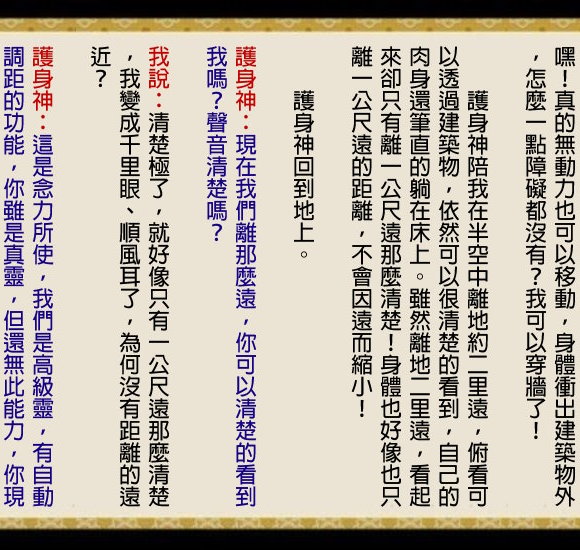 嘿！真的無動力也可以移動，身體衝出建築物外
，怎麼一點障礙都沒有？我可以穿牆了！
護身神陪我在半空中離地約二里遠，俯看可
以透過建築物，依然可以很清楚的看到，自己的
肉身還筆直的躺在床上。雖然離地二里遠，看起
來卻只有離一公尺遠那麼清楚！身體也好像也只
離一公尺遠的距離，不會因遠而縮小！
護身神回到地上。
護身神：現在我們離那麼遠，你可以清楚的看到
我嗎？聲音清楚嗎？
我說：清楚極了，就好像只有一公尺遠那麼清楚
，我變成千里眼、順風耳了，為何沒有距離的遠
近？
護身神：這是念力所使，我們是高級靈，有自動
調距的功能，你雖是真靈，但還無此能力，你現